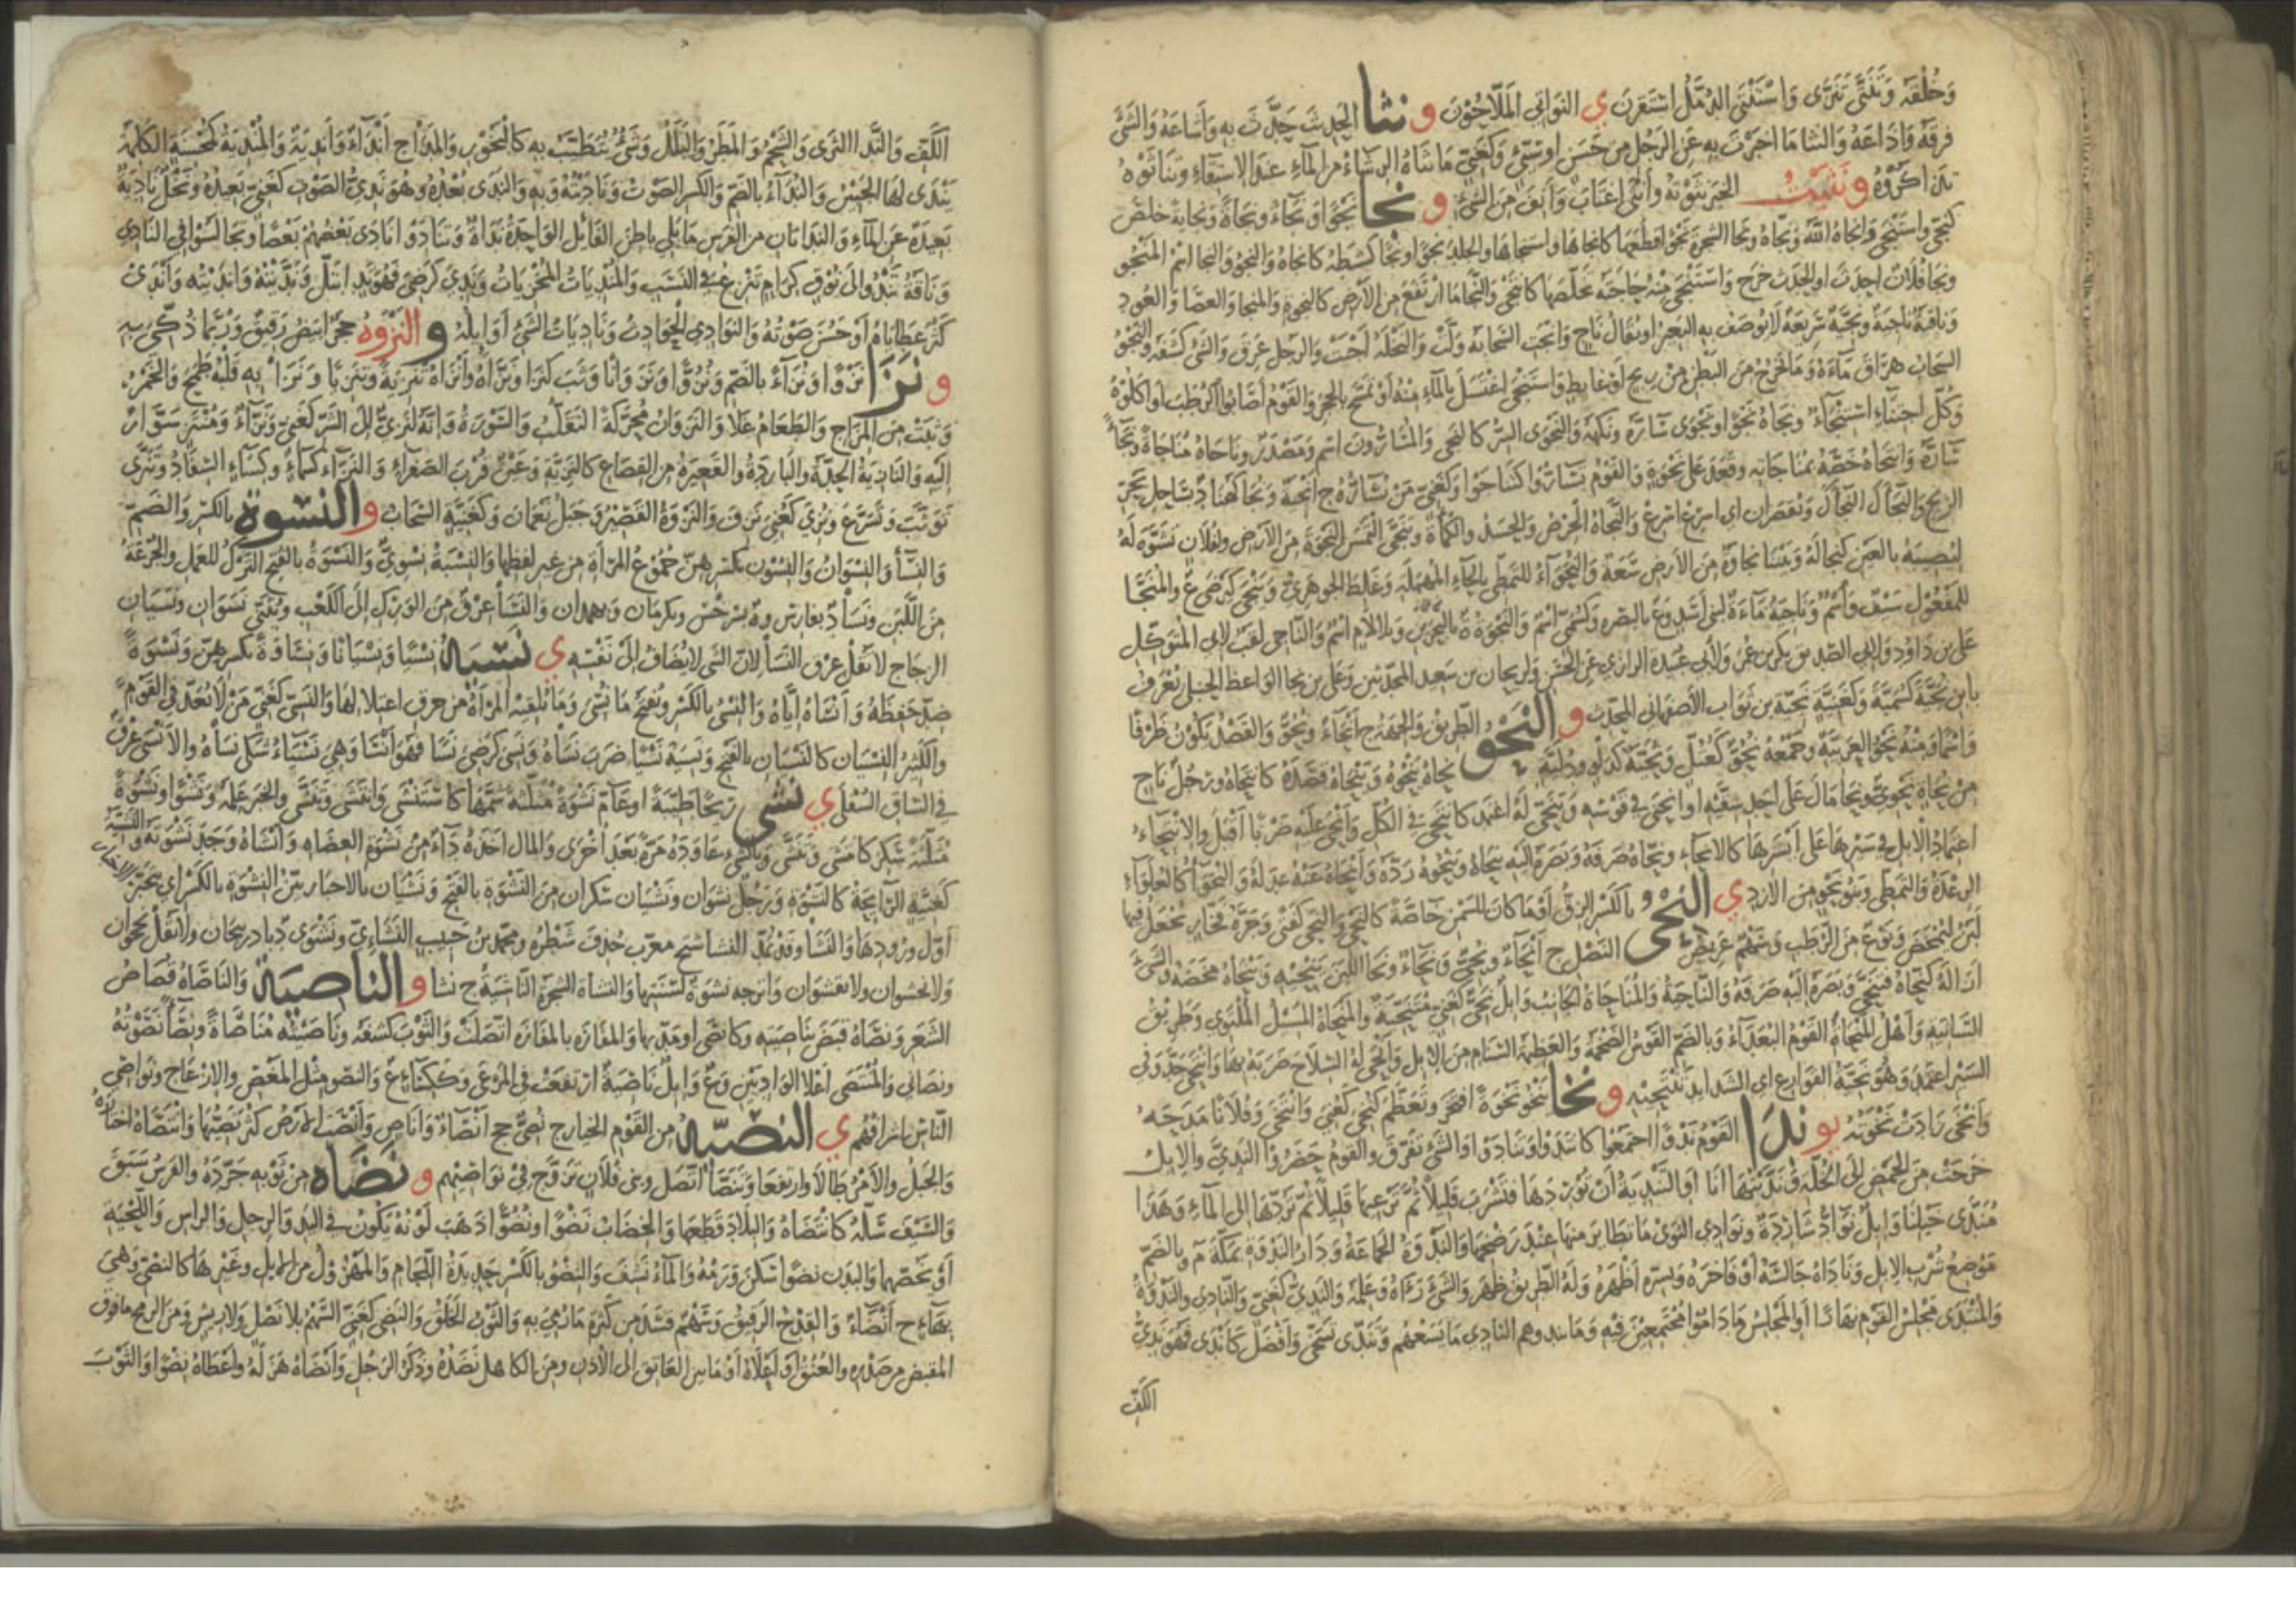 وَخُلْقَهُ وَتَنَتَّى تَنَزَّى وَاسْتَنْتَى الدُّمَّلُ اسْتَقْرَنَ ي النَّوَاتِي المَلَّاحُوْنَ و نثا الحَدِيثَ حَدَّثَ بِهِ وَأَشَاعَهُ وَالشَّيْءَ
فرقَهُ وَاَذَاعَهُ وَالنثا مَا اخبرْتَ بِهِ عَنِ الرَّجُلِ مِن حَسَنٍ اوْ سَيِّئٍ وَكَغَنِيّ مَا نَثَاهُ الرِشَاءُ مِنَ المَاءِ عندَ الاِسْتِقَاءِ وتَنَاثَوْهُ
تذَاكَرُوْهُ و نَثَيْتُ الخبر نَثَوْتهُ وَأَنْثَى اغْتَابَ وَأَنِفَ مِنَ الشَّيْءِ و نجا نَجْوًا وَنَجَاءً ونَجَاةً وَنجايةً خلصَ
كنجّى واسْتَنْجى وَانجاهُ اللهُ ونَجّاهُ ونجا الشجرَةَ نَجْوًا قطعَهَا كانجاها واستنجاها والجلدَ نجوًا ونجًا كشَطهُ كانجاهُ وَالنجْوُ وَالنجا اسْمُ المَنْجُو
ونجا فلان احدث او الحدث خرج وَاستنجى مِنْهُ حَاجَتهُ تخلّصَها كانتجى وَالنَّجَا مَا ارْتفَعَ مِنَ الاَرْضِ كالنجوة والمنجا والعصَا وَالعُود
وَناقة ناجِيَةٌ ونجِيَّةٌ سَرِيعَة لا يُوصَف بهِ البعير او يقال ناجٍ وَانْجتِ السَّحَابَةُ وَلَّتْ وَالنَّخْلَةُ أَجْنَتْ وَالرجل عَرِقَ وَالشَّيْءَ كشَفَهُ والنَّجْوُ
السحابُ هَرَاقَ مَاءَهُ وَمَا يخرجُ مِنَ البَطْنِ مِنْ رِيحٍ اَوْ غايِطٍ وَاسْتَنْجَى اغْتَسَلَ بالمَاءِ مِنْهُ أَوْ تَمَسَّحَ بالحجر وَالقَوْمُ أصَابُوا الرُّطَبَ اَو اكَلُوهُ
وَكُلُّ اجْتِنَاءٍ اسْتِنْجَاءٌ وَنجَاهُ نَجْوًا ونَجْوَى سَارَّهُ وَنَكَهَهُ وَالنَّجْوَى السِّرُّ كالنجي وَالمُسَارُّونَ اسم وَمَصْدَرٌ وَنَاجَاهُ مُنَاجَاةً وَنِجَاءً
سَارَّهُ وَانتَجَاهُ خَصَّهُ بمُنَاجَاتِهِ وقَعَدَ عَلى نَجْوَةٍ وَالقَوْمُ تَسَارُّوا كَتَنَاجَوْا وَكَغَنِيٍّ مَنْ تُسَارُّهُ ج أَنْجِيَةٌ وَنجا كَهُنَا د بسَاحِل بَحْرِ
الزنج وَالنَّجَاكَ النَّجَاكَ وَيُقصَرَان اى اسرع اسرع وَالنَّجَاةُ الحِرْصُ وَالحَسَدُ والكَمْأَةُ وَتَنَجَّى التَمَسَ النَّجْوَةَ مِنَ الاَرْضِ ولِفُلَانٍ تَشَوَّهَ لَهُ
ليُصِيبَهُ بالعَيْنِ كنجَا لَهُ وَبَيْنَنَا نَجاوَةٌ مِنَ الاَرْضِ سَعَةٌ وَالنُّجَوَاءُ للتمطى بالحاءِ المُهْمَلَةِ وَغَلِطَ الجوهَرِيُّ وَيَنْجَى كَيَرْضَى ع والمُنَجَّا
للمَفْعُول سَيْفٌ واسْمٌ وَنَاجِيَةُ مَاءَةٌ لبَنِي اسَدٍ وَع بالبَصْرَةِ وَكَسُمَيٍّ اسْمٌ وَالنَّجْوَةُ ة بالبَحْرَيْنِ وَبلا لَامٍ اسْمٌ وَالنَّاجِي لَقَبٌ لابِي المُتَوَكِّلِ
عَلِيّ بن دَاوُدَ وَلابِي الصِّديق بَكْرِ بن عُمَرَ وَلأبي عُبَيْدَةَ الرَّاوِي عَنِ الحَسَنِ وَلرَيحَان بن سَعِيد المحَدِّثِينَ وَعَلِيُّ بن نجا الوَاعِظُ الحَنْبَلِيُّ يُعْرَفُ
بابن نُجَيَّةَ كَسُمَيَّةَ وَكَغَنِيَّةٍ نَجِيَّةُ بن ثَوَاب الأَصْفَهَانِي المحَدِّث و النَّحْوُ الطَّرِيقُ وَالجِهَةُ ج أَنْحَاءٌ وَنُحُوٌّ وَالقَصْدُ يَكُوْنُ ظَرْفًا
وَاسْمًا وَمِنْهُ نَحْوُ العَرَبِيَّةِ وَجَمْعُهُ نُحُوٌّ كَعُتُلٍّ وَنُحِيَّةٌ كَدَلْوٍ وَدُلِيَّةٍ نَحَاهُ يَنْحُوهُ وَيَنْحَاهُ قَصَدَهُ كانتَحَاهُ ورَجُلٌ نَاحٍ
مِنْ نُحَاةٍ نَحْوِيٌّ ونَحَا مَالَ عَلَى اَحَدِ شِقَّيْهِ اوانْحَنَى فِي قَوْسِهِ وَتَنَحَّى لَهُ اعْتَمَدَ كانْتَحَى فِي الكُلِّ وَأَنْحَى عَلَيْهِ ضَرْبًا أَقْبَلَ والاِنْتِحَاءُ
اعْتِمَادُ الاِبلِ فِي سَيْرِهَا عَلى أَيْسَرِهَا كالاِنحَاءِ ونَحَاهُ صَرَفَهُ وَبَصَرَهُ إلَيْهِ يَنْحَاهُ وَيَنْحُوهُ رَدَّهُ وَأَنْحَاهُ عَنْهُ عَدَلَهُ وَالنُّحَوَاءُ كَالغُلَوَاءِ
الرِّعْدَةُ وَالتَّمَطِّي وَبَنُو نَحْوٍ مِنَ الأَزْدِ ي النِّحْيُ بالكَسْرِ الزِّقُّ اَوْ مَا كانَ لِلسَّمْنِ خَاصَّةً كالنَّحْيِ وَالنَّحَى كَفَتًى وَجَرَّةُ فَخَّارٍ يُجْعَلُ فِيهَا
لَبَنٌ لِيُمْخَضَ وَنَوْعٌ مِنَ الرُّطَبِ وَسَهْمٌ عَرِيضُ النَّصْلِ ج أَنْحَاءٌ وَنُحِيٌّ وَنِحَاءٌ وَنَحَا اللَّبَنَ يَنْحِيهِ وَيَنْحَاهُ مَخَضَهُ والشَّيْءَ
ازَالَهُ كنَحَّاهُ فَتَنَحَّى وَبَصَرَهُ إِلَيْهِ صَرَفَهُ وَالنَّاحِيَةُ وَالنَّاحَاةُ الجَانِبُ وَابلٌ نَحِيٌّ كَغَنِيٍّ مُتَنَحِّيَةٌ والمَنْحَاةُ المَسِيلُ المُلْتَوِي وَطَرِيقُ
السَّانِيَةِ وَأَهْلُ المَنْحَاةِ القَوْمُ البُعَدَاءُ وَبالضَّمِّ القَوْسُ الضَّخْمَةُ وَالعَظِيمَةُ السَّنَامِ مِنَ الاِبِلِ وَأَنْحَى لَهُ السِّلَاحَ ضَرَبَهُ بِهَا وَانْتَحَى جَدَّ وَفِي
السَّيْرِ اعْتَمَدَ وَهُوَ نَحِيَّةُ القَوَارِعِ اى الشَّدَايِد تَنْتَحِيهِ و نخا يَنْخُو نَخْوَةً افتَخَرَ وتَعَظَّمَ كنُخِيَ كَعُنِيَ وَانْتَخَى وَفُلَانًا مَدَحَهُ
وَأَنْخَى زَادَتْ نَخْوَتُهُ يو ندَا القَوْمُ نَدْوًا اجْتَمَعُوا كانْتَدَوْا وَتَنَادَوْا وَالشَّيْءُ تَفَرَّقَ والقَومُ حَضَرُوا النَدِيَّ وَالإِبِلُ
خَرَجَتْ مِنَ الحَمْضِ إلَى الخُلَّةِ وَنَدَّيْتُهَا اَنَا اَوِ التَّنْدِيَةُ أَنْ تُوْرِدَهَا فَتَشْرَبَ قَلِيلاً ثُمَّ تَرْعَاهَا قَلِيلاً ثُمَّ تَرُدَّهَا إلَى المَاءِ وَهَذَا
مُنَدَّى خَيْلِنَا وَابلٌ نَوَادٍ شَارِدَةٌ وَنَوَادِي النَّوَى مَا تَطَايَرَ مِنهَا عِنْدَ رَضْخِهَا وَالنَّدْوَةُ الجَمَاعَةُ وَدَارُ النَّدْوَةِ بمَكَّةَ م وبالضَّمِّ
مَوْضِعُ شُرْبِ الاِبِلِ وَنَادَاهُ جَالَسَهُ أَوْ فَاخَرَهُ وَبِسِرِّهِ أَظْهَرَهُ وَلَهُ الطَّرِيقُ ظَهَرَ وَالشَّيْءَ رَآهُ وَعَلِمَهُ وَالنَّدِيُّ كَغَنِيٍّ وَالنَّادِي والنَّدْوَةُ
وَالمُنْتَدَى مَجْلِسُ القَوْمِ نهَارًا أَوِ المَجْلِسُ مَا دَامُوا مُجْتَمِعِيْنَ فِيهِ وَمَا يندوهم النَّادِي مَا يَسَعُهُمْ وَتَنَدَّى تَسَخَّى وَأَفْضَلَ كَأَنْدَى فَهُوَ نَدِيُّ
الكَفِّ
الكَفِّ وَالنَّدَا الثَّرَى وَالشَّحْمُ وَالمَطَرُ وَالبَلَلُ وَشَيْءٌ يُتَطَيَّبُ بِهِ كَالبَخُورِ وَالمَدَا ج أَنْدَاءٌ وَأَنْدِيَةٌ وَالمُنْدِيَةُ كَمُحْسِنَةٍ الكَلِمَةُ
يَنْدَى لَهَا الجَبِيْنُ وَالنُّدَاءُ بالضَّمِّ وَالكَسْرِ الصَّوْتُ وَنَادَيْتُهُ وَبِهِ وَالنَّدَى بُعْدُهُ وَهُوَ نَدِيُّ الصَّوْتِ كَغَنِيٍّ بَعِيدُهُ وَنَخْلٌ نَادِيَةٌ
بَعِيدَةٌ عَنِ المَاءِ وَالنَّدَاتَانِ مِنَ الفَرَسِ مَا يَلِي بَاطِنَ الفَائِلِ الوَاحِدَةُ نَدَاةٌ وَتَنَادَوْا نَادَى بَعْضُهُمْ بَعْضًا وتَجَالَسُوا فِي النَّادِي
وَنَاقَةٌ تَنْدُو إلَى نُوْقٍ كِرَامٍ تَنْزِعُ فِي النَّسَبِ وَالمُنْدِيَاتُ المُخْزِيَاتُ وَنَدِيَ كَرَضِيَ فَهُوَ نَدٍ ابْتَلَّ وَنَدَّيْتُهُ وَانْدَيْتُه وَأَنْدَى
كَثُرَ عَطَايَاهُ اَوْ حَسُنَ صَوْتُهُ وَالنوَادِي الحَوَادِثُ وَنَادِيَاتُ الشَّيْءِ أَوَايلُهُ و النَّزْوَهُ حَجَرٌ ابْيَضُ رَقِيقٌ وَرُبَّمَا ذُكِّيَ بِهِ
و نَزَا نَزْوًا وَنُزَاءً بالضَّمِّ وَنُزُوًّا وَنَزَوَانًا وَثَبَ كنَزَّا وَنَزَّاهُ وَأَنْزَاهُ تَنْزِيَةً وتَنْزِيًا وَنَزَا بِهِ قَلْبُهُ طَمَحَ وَالحُمُرُ
وَثَبَتْ مِنَ المِرَاحِ وَالطَّعَامُ غَلَا وَالنَّزَوَانُ مُحَرَّكَةً التَّفَلُّتُ وَالسَّوْرَةُ وَإنَّهُ لَنَزِيٌّ إلَى الشَّرِّ كَغَنِيٍّ وَنَزَّاءٌ وَمُنْتَزٍ سَوَّارٌ
إلَيْهِ وَالنَّازِيَةُ الحِدَّةُ وَالبَادِرَةُ والقَعِيرَةُ مِنَ القِصَاعِ كالنَّزِيَّةِ وَعَيْنٌ قُرْبَ الصَّفْرَاءِ وَالنزَاءُ كسَمَاءٍ وكِسَاءٍ السِّفَادُ وَتَنَزَّى
تَوَثَّبَ وَتَسَرَّعَ وَنُزِيَ كَعُنِيَ نُزِفَ وَالنَّزْوَةُ القَصِيرُ وَجَبَلٌ بعُمَان وَكَغَنِيَّةٍ السَّحَابُ و النِّسْوَةُ بالكَسْرِ وَالضَّمِّ
وَالنِّسَاءُ وَالنِّسْوَانُ وَالنِّسُونَ بكَسْرِهِنَّ جُمُوْعُ المَرْأَةِ مِنْ غيرِ لَفظِهَا وَالنِّسْبَةُ نِسْوِيٌّ وَالنَّسْوَةُ بالفَتْحِ التَّرْكُ للعَمَلِ وَالجُرْعَةُ
مِنَ اللَّبَنِ وَنَسَا د بفَارِسَ وة بسَرَخْسَ وبكِرْمَان وَبهمدَان وَالنَّسَا عِرْقٌ مِنَ الوَرِكِ إلَى الكَعْبِ وَيُثَنَّى نَسَوَانِ وَنَسَيَانِ
الزجَّاج لا تَقُلْ عِرْقُ النَّسَا لِأنَّ الشَّيْءَ لا يُضَافُ إلَى نَفْسِهِ ي نَسِيَهُ نَسْيًا وَنِسْيَانًا وَنِسَاوَةً بكَسْرِهِنَّ وَنَسْوَةً
ضِدُّ حَفِظَهُ وَأَنْسَاهُ ايَّاهُ وَالنِّسْيُ بالكَسْرِ وَيُفْتَحُ مَا نُسِيَ وَمَا تُلْقِيهِ المَرْأَةُ مِنْ خِرَقِ اعْتِلَالِهَا وَالنَّسِيُّ كَغَنِيٍّ مَنْ لَا يُعَدُّ فِي القَوْمِ
وَالكَثِيرُ النِّسْيَان كالنَّسْيَانِ بالفَتْحِ وَنَسَيَهُ نَسْيًا ضَرَبَ نَسَاهُ وَنَسِيَ كَرَضِيَ نَسًا فَهُوَ أَنْسَا وَهِيَ نَسْيَاءُ شَكَا نَسَاهُ وَالأَنْسَى عِرْقٌ
فِي السَّاقِ السُّفْلَى ي نَشِيَ رِيحًا طَيِّبَةً اوعَامٌّ نَشْوَةً مُثَلَّثَةً شَمَّهَا كاسْتَنْشَى وَانْتَشَى وَتَنَشَّى والخَبَرَ عَلِمَهُ وَنَشْوًا وَنَشْوَةً
مُثَلَّثَةً سَكِرَ كانْتَشَى وَتَنَشَّى وَبِالشَّيْءِ عَاوَدَهُ مَرَّةً بَعْدَ أُخْرَى وَالمَالُ اَخَذَهُ دَاءٌ مِنْ نَشْوَةِ العِضَاهِ وَأَنْشَاهُ وَجَدَ نَشْوَتَهُ وَالنَّشِيَّةُ
كَغَنِيَّةٍ الرَّايِحَةُ كَالنَّشْوَةِ وَرَجُلٌ نَشْوَان وَنَشْيَان سَكْرَان مِنَ النَّشْوَةِ بالفَتْحِ وَنَشْيَان بِالاخبارِ بَيِّنُ النِّشْوَةِ بالكَسْرِ اى يَتَخَبَّرُ الاخبار
أوَّلَ وُرُودِهَا وَالنَّشَا وَقَدْ يُمَدُّ النشاسْتَج معَرَّب حُذِفَ شَطْرُهُ ومحَمَّدُ بنُ حَبِيبٍ النَّشَائِيُّ وَنَشْوَى د باذربيجَان ولا تَقُلْ نخْجُوَان
وَلا نخشوان ولا نقشَوَان وَانزجه نَشْوَةٌ لسَنَتِهَا وَالنشَاة الشجَرَة النَّاشِيَةُ ج نشا و النَّاصِيَةُ وَالنَّاصَاةُ قُصَاصُ
الشَّعَرِ وَنَصَاهُ قَبَضَ بنَاصِيَتِهِ وكانْصَى او مَدَّ بِهَا وَالمَفَازَة بالمفَازَه اتَّصَلَتْ وَالثَّوْبَ كَشَفَهُ وَنَاصَيْتُهُ مُنَاصَاةً ونِصَاءً نَصَوْتُهُ
ونصَانِي وَالمُنْتَصَى اعْلَا الوَادِيَيْنِ وَع وَابِلٌ نَاصِيَةٌ ارْتَفَعَتْ فِي المَرْعَى وَكَكِسَاءٍ ع وَالنَّصْوُ مِثْلُ المَغْصِ والاِزْعَاجُ وَنَوَاصِي
النَّاسِ اشرَافُهُم ي النَّصِيَّةُ مِنَ القَوْمِ الخيارُ ج نَصِيٌّ جج أَنْصَاءٌ وَأَنَاصٍ وَأَنْصَتِ الاَرْضُ كَثُرَ نَصِيُّهَا وَانْتَصَاهُ اخْتَارَهُ
وَالجَبَلُ والأَمْرُ طَالَا وارتفَعَا وَتَنَصَّا اتَّصَلَ وَبَنِي فُلَانٍ تَزَوَّجَ فِي نَوَاصِيهِم و نَضَاهُ مِنْ ثَوْبِهِ جَرَّدَهُ والفَرَسُ سَبَقَ
وَالسَّيْفَ سَلَّهُ كانْتَضَاهُ وَالبِلَادَ قَطَعَهَا وَالخِضَابُ نَضْوًا وَنُضُوًّا ذَهَبَ لَوْنُهُ يَكُوْنُ فِي اليَدِ وَالرِّجْلِ وَالراسِ وَاللِّحْيَةِ
أَوْ يَخُصُّهُمَا وَالجُرْحُ نضوًا سَكَنَ وَرَمُهُ وَالمَاءُ نَشِفَ وَالنِّضْوُ بالكَسْرِ حَدِيدَةُ اللِّجَامِ وَالمَهْزُولُ مِنَ الاِبِلِ وَغَيْرِهَا كالنَّضِيِّ وَهِيَ
بهَاءٍ ج أَنْضَاءٌ وَالقِدْحُ الرَّقِيقُ وَسَهْمٌ فَسَدَ مِنْ كَثْرَةِ مَا رُمِيَ بِهِ وَالثَّوْبُ الخَلَقُ وَالنَّضِيُّ كَغَنِيٍّ السَّهْمُ بِلَا نَصْلٍ وَلَا رِيشٍ وَمِنَ الرُّمْحِ مَا فَوْقَ
المقبِضِ مِن صَدْرِهِ والعُنُقُ اَو أَعْلَاهُ اَوْ مَا بَيْنَ العَاتِقِ إلَى الأُذُنِ وَمِنَ الكَاهِلِ نَضَدُهُ وَذَكَرُ الرَّجُلِ وَأَنْضَاهُ هَزَلَهُ وَاعْطَاهُ نِضْوًا وَالثَّوْبَ